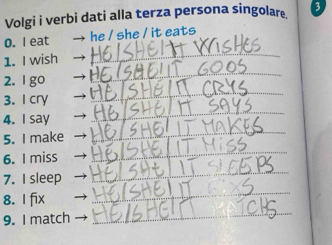 Volgi i verbi dati alla terza persona singolare. 3
0. I eat → he / she / it eats
1. I wish → HE / SHE / IT WISHES
2. I go → HE / SHE / IT GOOS
3. I cry → HE / SHE / IT CRYS
4. I say → HE / SHE / IT SAYS
5. I make → HE / SHE / IT MAKES
6. I miss → HE / SHE / IT MISS
7. I sleep → HE / SHE / IT SLEEPS
8. I fix → HE / SHE / IT
9. I match → HE / SHE / IT